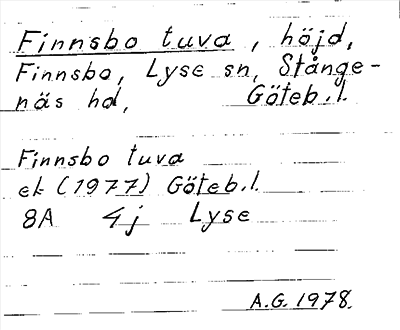 Finnsbo tuva, höjd,
Finnsbo, Lyse sn, Stånge-
näs hd, Göteb.l.
Finnsbo tuva
ek (1977) Göteb.l.
8A 4j Lyse
A.G. 1978.